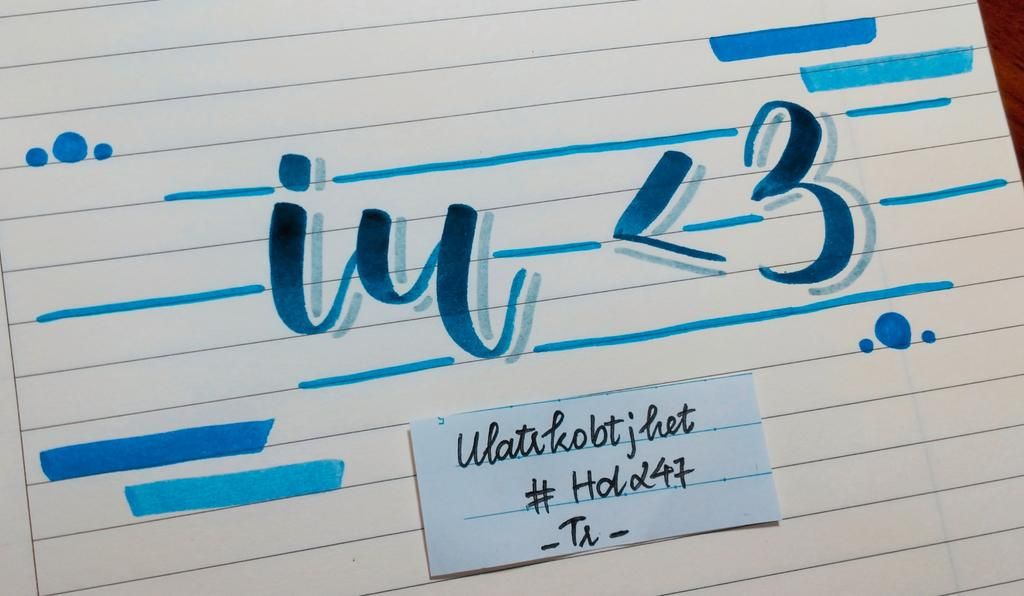 iu <3
Ulatikobtjhet
# Hdα247
- Tr -